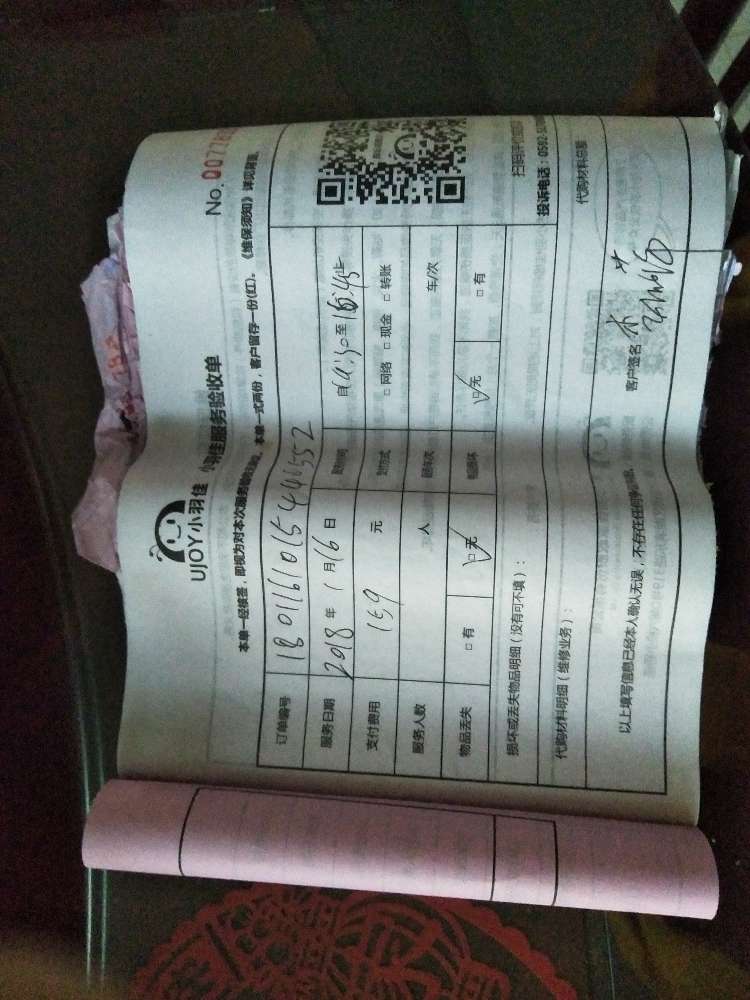 UJOY小羽佳 小羽佳服务验收单
No. 0077
本单一经核签，即视为对本次服务验收 本单一式两份，客户留存一份(红)。《维保须知》详见背面。
订单编号 18011610154446552
服务日期 2018 年 1 月 16 日 自 至 16:45止
支付费用 159 元 支付方式 □网络 □现金 □转账
服务人数 人 车/次
物品丢失 □有 □无 □无 □有
扫码评价
损坏或丢失物品明细（没有可不填）：
投诉电话：0592-
代购材料明细（维修业务）：
代购材料总额
以上填写信息已经本人确认无误，不存在任何
客户签名